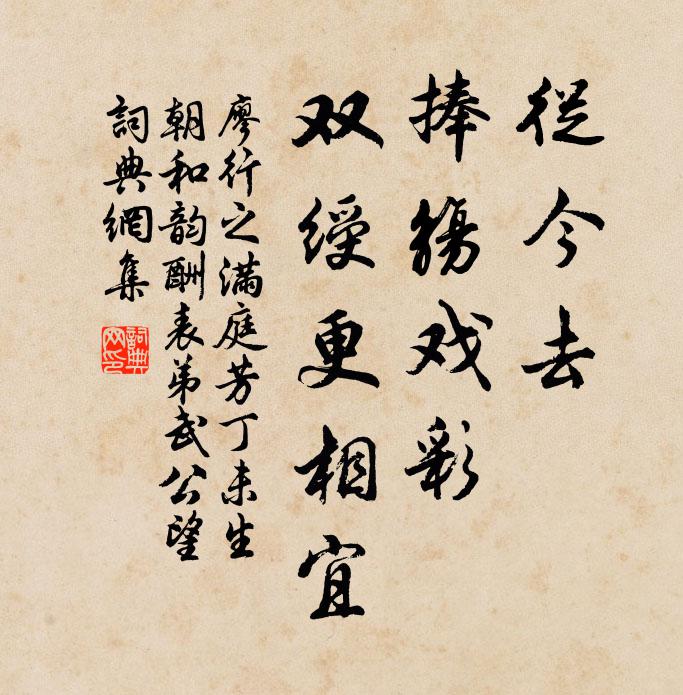 從今去
捧觴戏彩
双綬更相宜
廖行之滿庭芳丁未生
朝和韵酬表弟武公望
詞典網集
詞典
网印